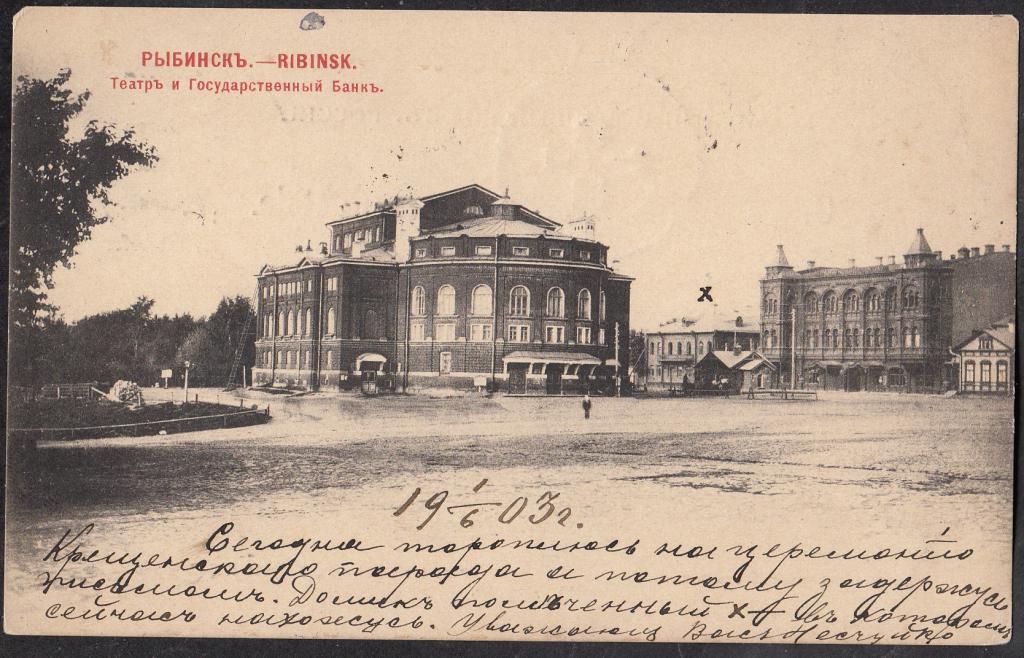 РЫБИНСКЪ.—RIBINSK.
Театръ и Государственный Банкъ.
х
19 1/6 03г.
Сегодня тороплюсь на церемонію
Крещенскаго парада и потому задержусь
письмомъ. Домикъ помѣченный х — въ которомъ
сейчасъ нахожусь. Уважающ Васъ